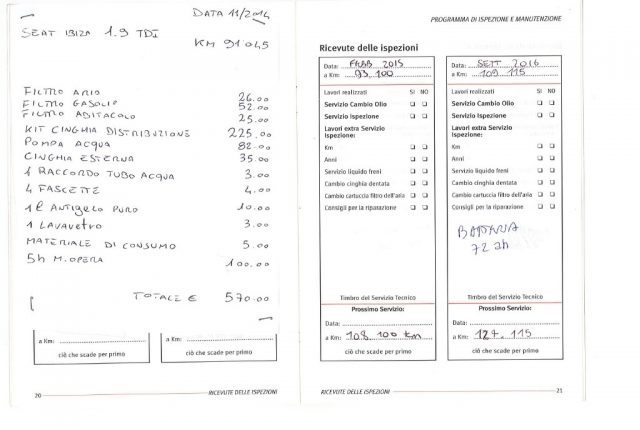 DATA 11/2014
SEAT IBIZA 1.9 TDI
KM 91045
FILTRO ARIA 26.00
FILTRO GASOLIO 52.00
FILTRO ABITACOLO 25.00
KIT CINGHIA DISTRIBUZIONE 225.00
POMPA ACQUA 82.00
CINGHIA ESTERNA 35.00
1 RACCORDO TUBO ACQUA 3.00
4 FASCETTE 4.00
1 l ANTIGELO PURO 10.00
1 LAVAVETRO 3.00
MATERIALE DI CONSUMO 5.00
5h M. OPERA 100.00
TOTALE € 570.00
a Km:
ciò che scade per primo
a Km:
ciò che scade per primo
20
RICEVUTE DELLE ISPEZIONI
PROGRAMMA DI ISPEZIONE E MANUTENZIONE
Ricevute delle ispezioni
Data: FEBB 2015
a Km: 93.100
Lavori realizzati SI NO
Servizio Cambio Olio
Servizio Ispezione
Lavori extra Servizio
Ispezione:
Km
Anni
Servizio liquido freni
Cambio cinghia dentata
Cambio cartuccia filtro dell'aria
Consigli per la riparazione
Timbro del Servizio Tecnico
Prossimo Servizio:
Data:
a Km: 108.100 km
ciò che scade per primo
Data: SETT 2016
a Km: 109.115
Lavori realizzati SI NO
Servizio Cambio Olio
Servizio Ispezione
Lavori extra Servizio
Ispezione:
Km
Anni
Servizio liquido freni
Cambio cinghia dentata
Cambio cartuccia filtro dell'aria
Consigli per la riparazione
BATTERIA
72 ah
Timbro del Servizio Tecnico
Prossimo Servizio:
Data:
a Km: 124.115
ciò che scade per primo
RICEVUTE DELLE ISPEZIONI
21